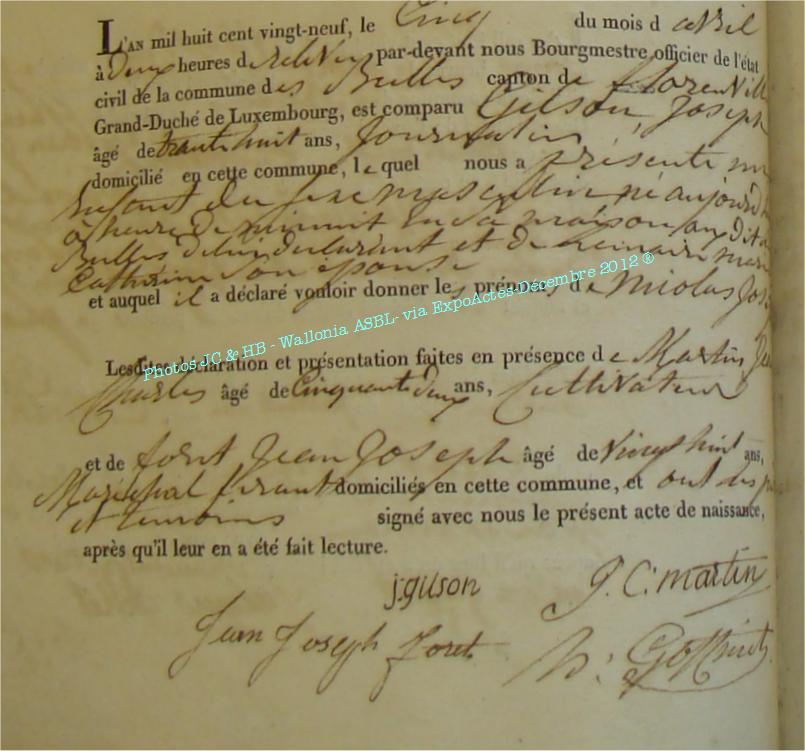 L'AN mil huit cent vingt-neuf, le Cinq du mois d avril
à Deux heures d relevée par-devant nous Bourgmestre, officier de l'état
civil de la commune des Bulles canton de florenville
Grand-Duché de Luxembourg, est comparu Gilson, Joseph
âgé de trente huit ans, Journalier
domicilié en cette commune, le quel nous a présenté un
Enfant du sexe masculin né aujourd'h
a heure de minuit en sa maison au dit
Bulles de lui déclarant et de marie
Catherine son épouse
et auquel il a déclaré vouloir donner les prénoms de Nicolas Jos
Photos JC & HB - Wallonia ASBL- via ExpoActes-Décembre 2012 ®
Lesdites déclaration et présentation faites en présence de Martin Jean
Charles âgé de Cinquante deux ans, Cultivateur
et de foret Jean Joseph âgé de vingt huit ans,
Maréchal ferant domiciliés en cette commune, et ont les p
et temoins signé avec nous le présent acte de naissance,
après qu'il leur en a été fait lecture.
j:gilson J. C. martin
Jean Joseph foret